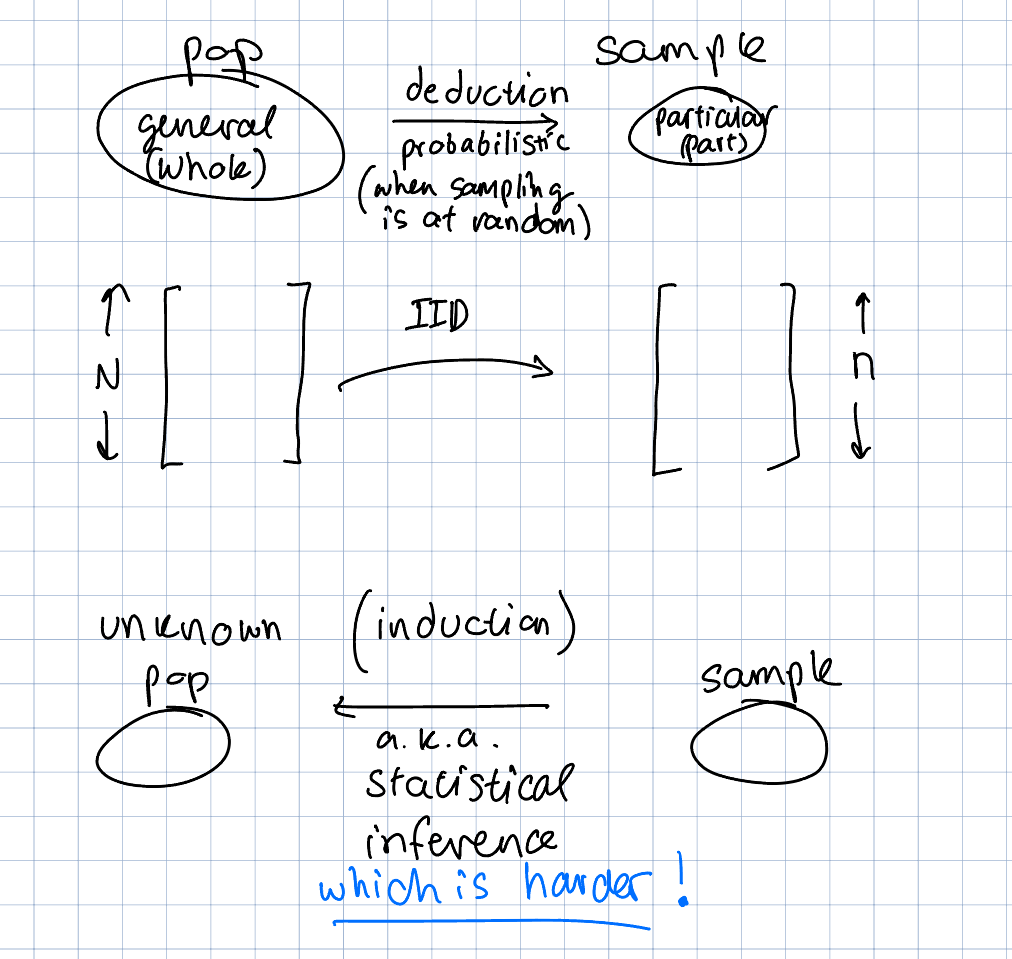 pop
sample
general
(whole)
deduction
probabilistic
(when sampling
is at random)
particular
(part)
N
IID
n
unknown
pop
(induction)
sample
a.k.a.
statistical
inference
which is harder!